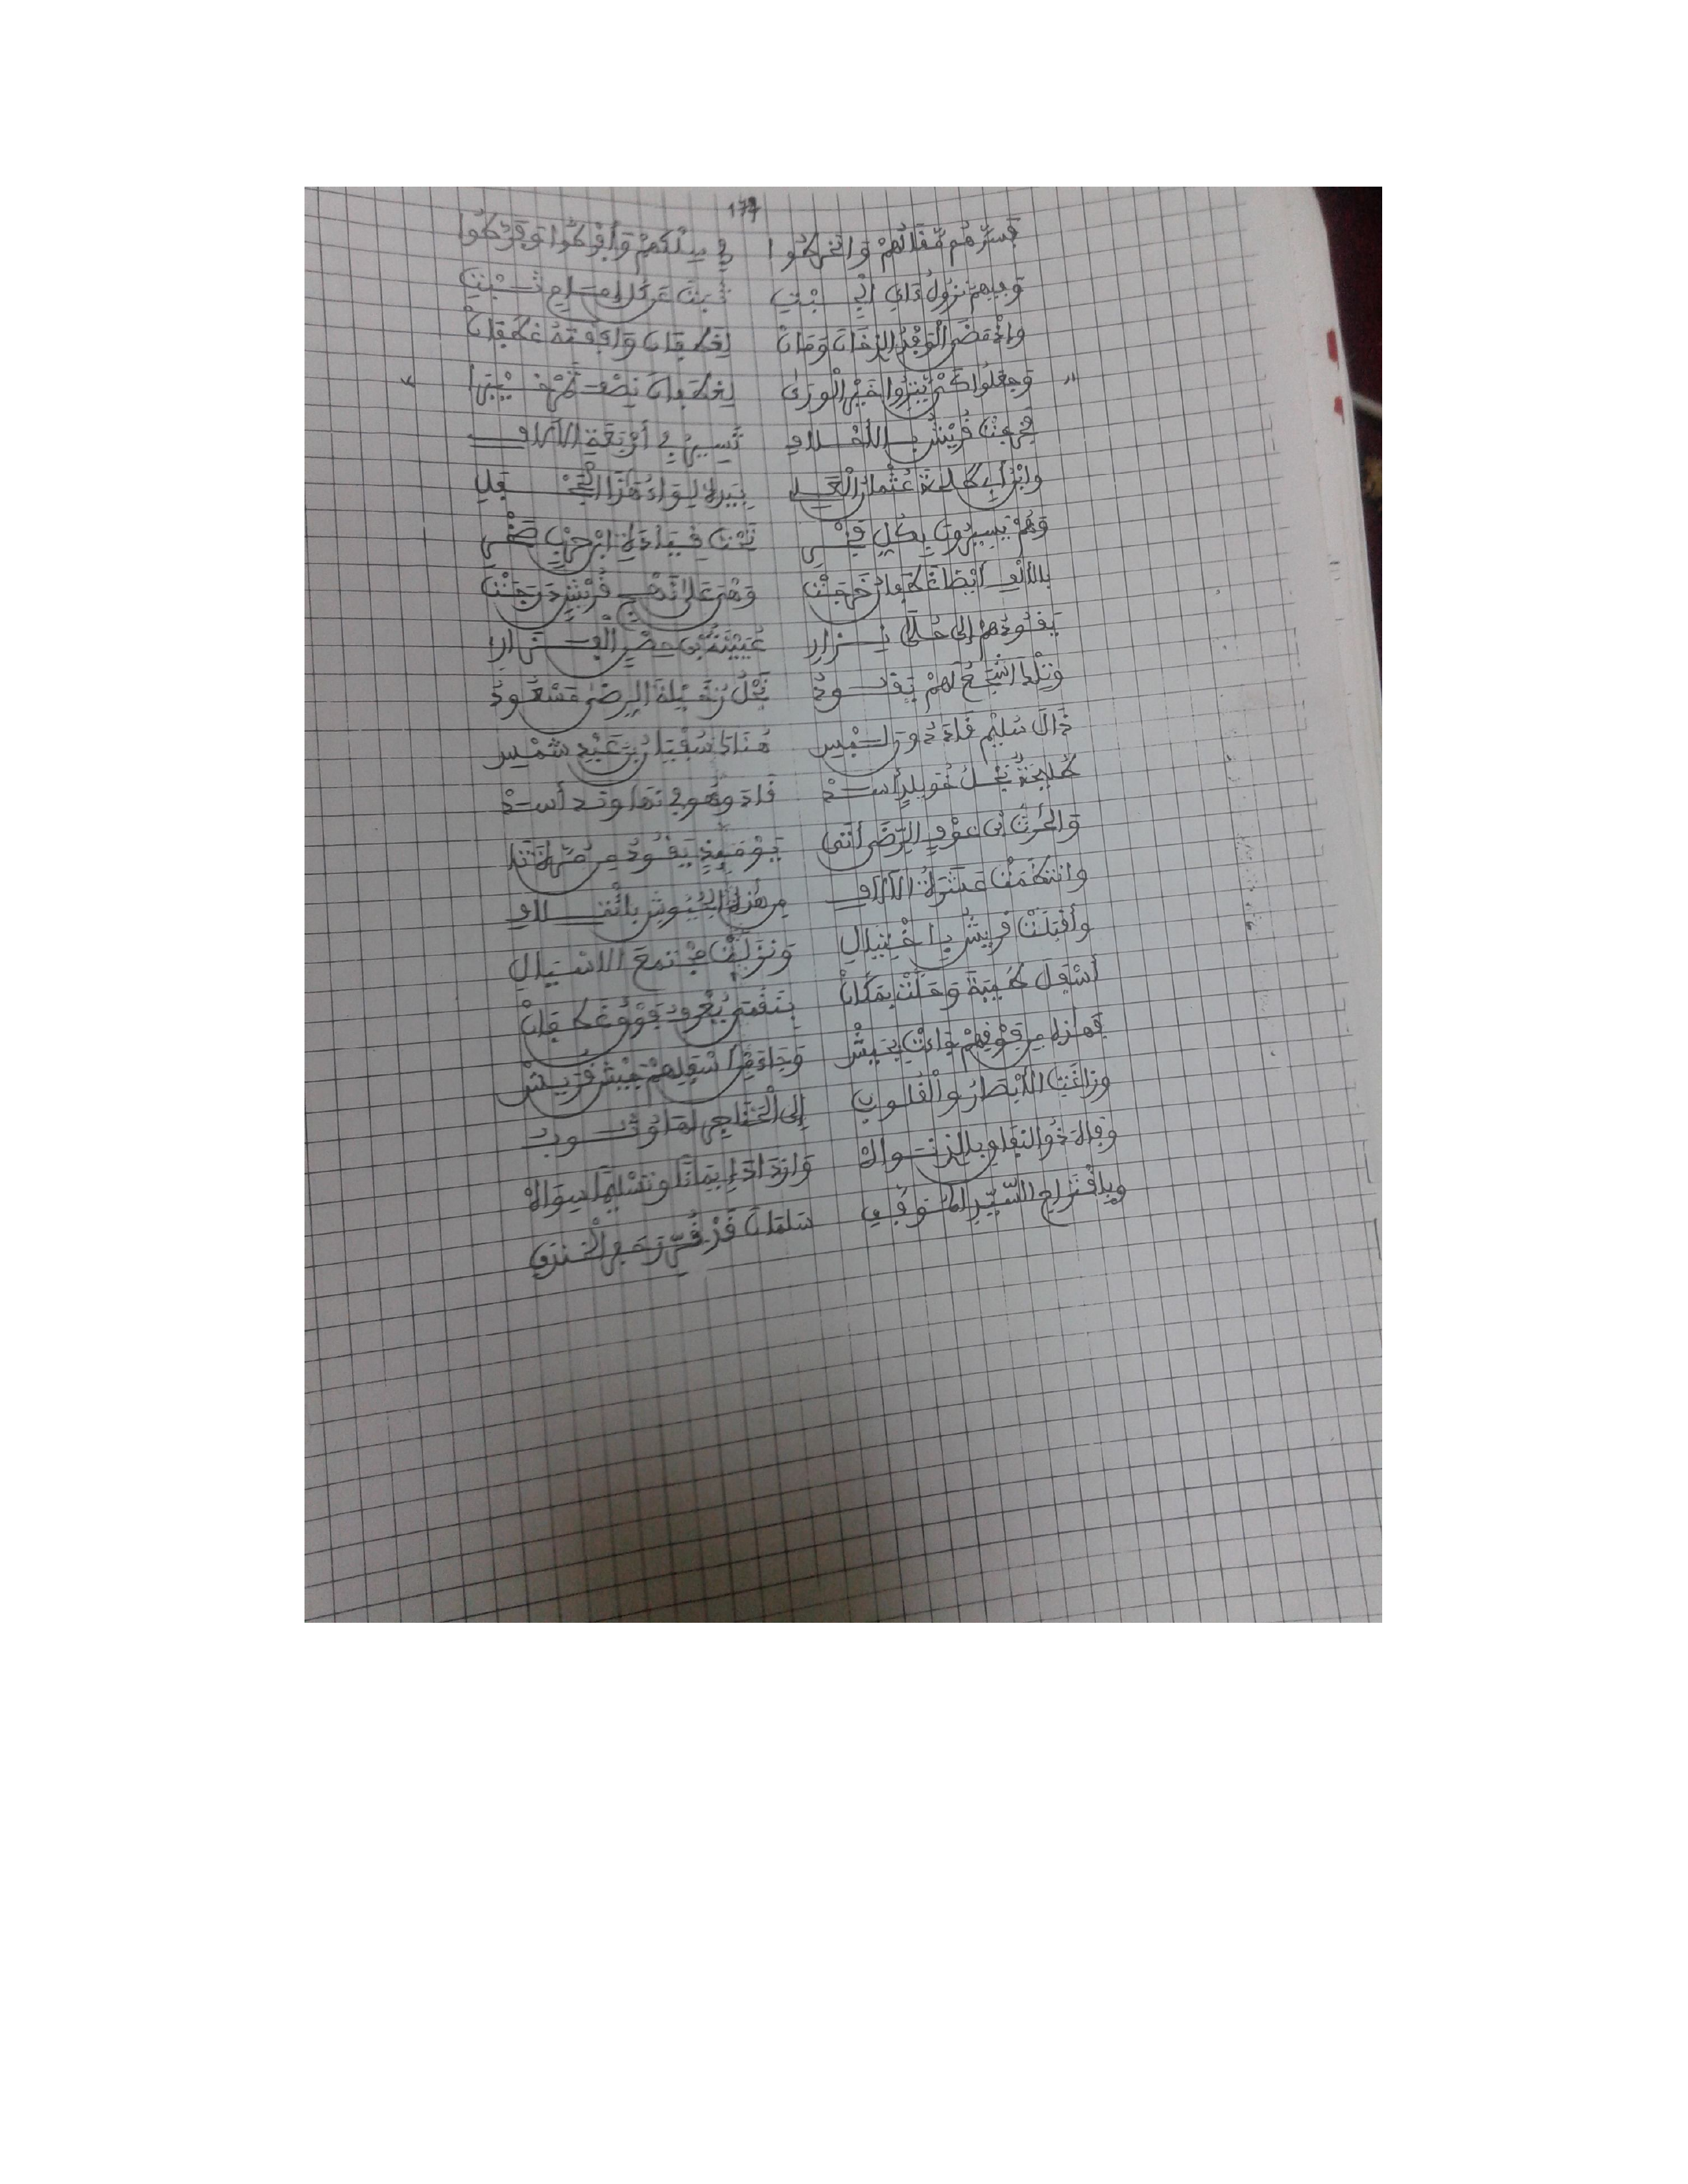 177
فَسَرَّهُم مَّقَالُهُمْ وَانْخَرَطُوا في سِلْكِهِمْ وَأَفْرَطُوا وَفَرَّطُوا
وَفِيهِمْ نُزُولُ ذَاي الجبْتِ ثَبَتَ عَن كل إمام ثَبْتِ
وَإِذْ مَضَى الْوَفْدُ الذِ خَانَ وَمَانْ لِغَطَفَانَ وَافَقَتْهُ غَطَفَانْ
وَجَعَلُوا كَيْ يَنزُوا خَيْرَ الْوَرَى لِغَطَفَانَ نِصْفَ تَمْرِ خَيْبَرَا
فَخرجتْ قُرَيْشُ بِالأَحْلافِ تَسِيرُ في أَرْبَعَةِ الآلافِ
وَابْنُ أَبِي طلحة عُثْمَانُ الْعَلِي بِيَدِهِ لِوَاءُ هَذَا الْجَحْفَلِ
وَهُمْ يَسِيرُونَ بِكُلِّ فَخْرِ تَحْتَ قِيَادَةِ ابْنِ حَرْبٍ صَخْرِ
بِالأَلْفِ أَيْضًا غَطَفَانُ خَرَجَتْ وَهْيَ عَلَى نَهْجِ قُرَيْشٍ دَرَجَتْ
يَقُودُهم إِلَى حُلَى نِزَارِ عُيَيْنَةُ بْنُ حِصْنٍ الْفَزَارِ
وَتِلْكَ أَشْجَعُ لَهُمْ يَقُودُ نَجْلُ رُخَيْلَةَ الرِّضَى مَسْعُودُ
ذَاكَ سُلَيْمٌ قَادَ دُونَ لَبْسِ هُنَاكَ سُفْيَانُ بن عَبْدِ شَمْسِ
طُلَيْحَةٌ نَجْلُ خُوَيْلِدٍ أَسَدْ قَادَ وَهُوَ في نَهَاوَنْدَ أَسَدْ
وَالْحَرْثُ بْنُ عَوْفٍ الرِّضَى أَتَى يَوْمَئِذٍ يَقُودُ مِن مُرَّةَ
وَانْتَظَمَتْ عَشَرَةُ الآلافِ مِن هَذِهِ الجُيُوشِ بِائْتِلافِ
وَأَقْبَلَتْ قُرَيْشُ بِاخْتِيَالِ وَنَزَلَتْ مُجْتَمَعَ الاسْيَالِ
أَسْفَلَ طَيْبَةَ وَحَلَّتْ بِمَكَانْ بِنَقَمَى بُعْدٍ فَوْقُ غَطَفَانْ
فَهَذِهِ مِن فَوْقِهِمْ جَاءَتْ بِجَيْشْ وَجَاءَ مِنْ أَسْفَلِهِمْ جَيْشُ قُرَيْشْ
وَزَاغَتِ الأَبْصَارُ وَالْقُلُوبُ إِلَى الْحَنَاجِرِ لَهَا وُثُوبُ
وَقَالَ ذُو النِّفَاقِ بِالذِ نَوَاهْ وَازْدَادَ إِيمَانًا وَتَسْلِيمًا سِوَاهْ
وَبِاقْتِرَاحِ السَّيِّدِ الْمُوَفَّقِ سَلْمَانَ قَدْ حَفْرُ الْخَنْدَقِ